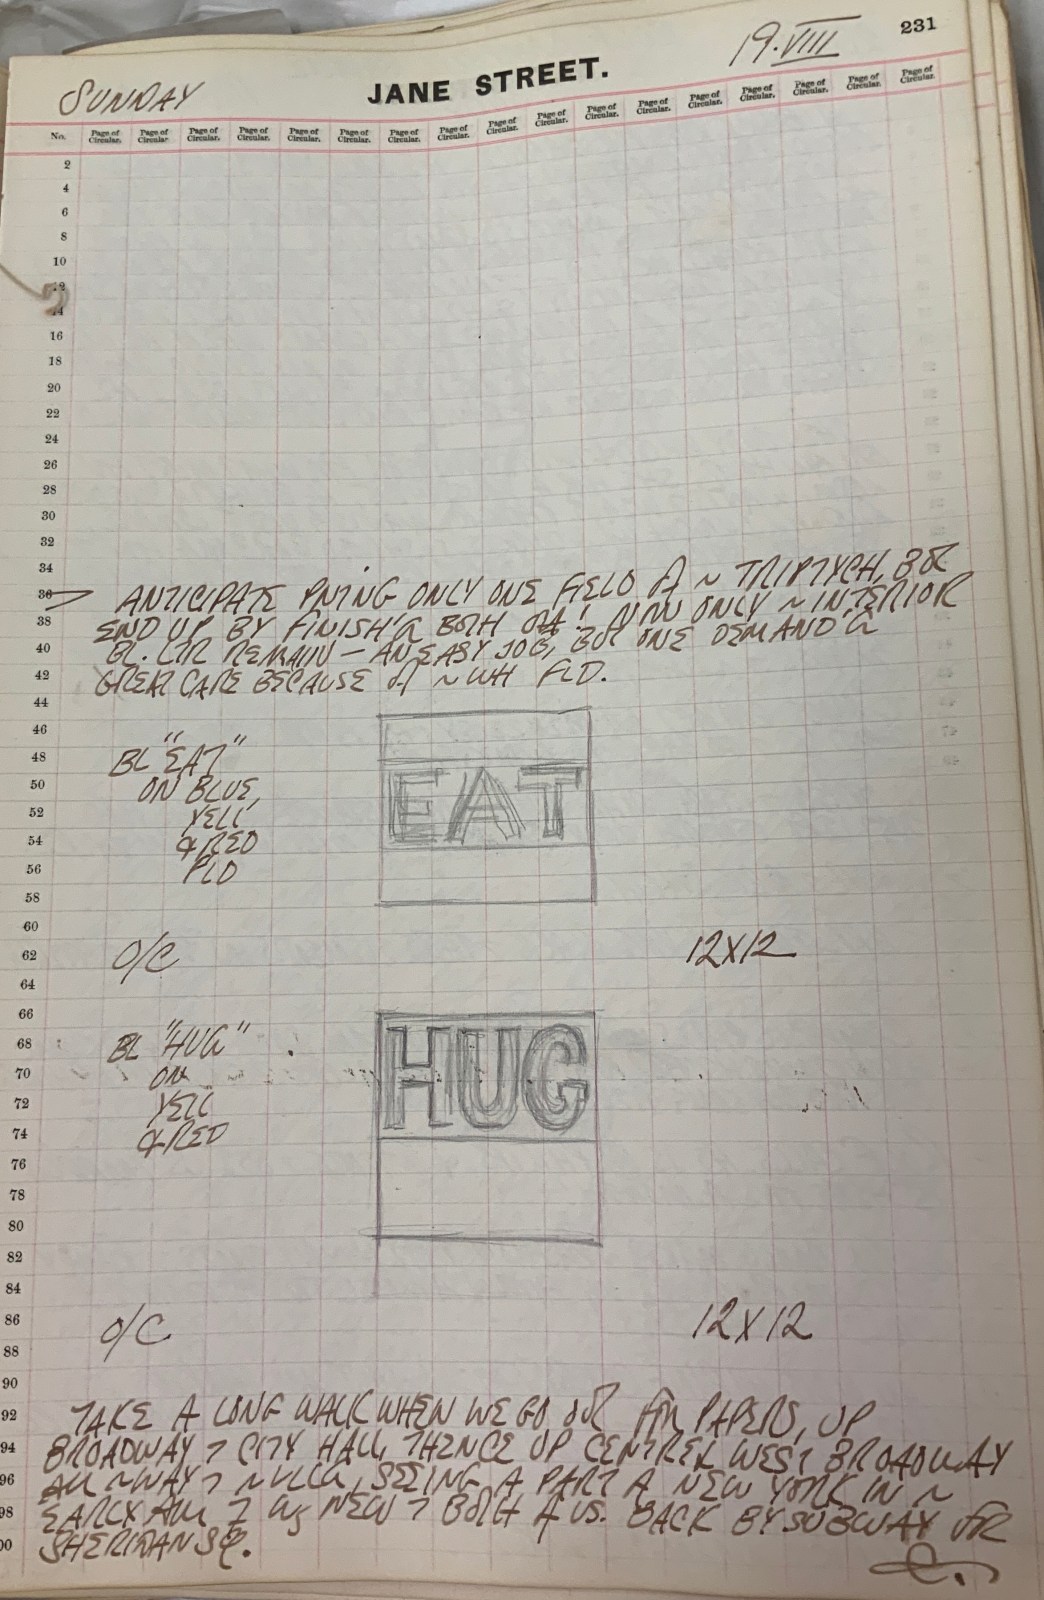 231
SUNDAY JANE STREET. 19.VIII
No. Page of Circular. Page of Circular. Page of Circular. Page of Circular. Page of Circular. Page of Circular. Page of Circular. Page of Circular. Page of Circular. Page of Circular. Page of Circular. Page of Circular. Page of Circular. Page of Circular. Page of Circular. Page of Circular. Page of Circular.
2
4
6
8
10
12
14
16
18
20
22
24
26
28
30
32
34
36 ANTICIPATE PNTNG ONLY ONE FIELD ~ TRIPTYCH, BUT
38 END UP BY FINISH'G BOTH NOW ONLY ~ INTERIOR
40 BL. LTR REMAIN — AN EASY JOB, BUT ONE DEMAND'G
42 GREAT CARE BECAUSE OF ~ WH FLD.
44
46
48 BL "EAT"
50 ON BLUE, EAT
52 YELL
54 & RED
56 FLD
58
60
62 O/C 12X12
64
66
68 BL "HUG" HUG
70 ON
72 YELL
74 & RED
76
78
80
82
84
86 O/C 12X12
88
90
92 TAKE A LONG WALK WHEN WE GO OUT FOR PAPERS, UP
94 BROADWAY CITY HALL, THENCE UP CENTRE, WEST BROADWAY
96 ALL ~ WAY ~ SEEING A PART NEW YORK IN ~
98 EARLY NEW BOTH US. BACK BY SUBWAY FOR
00 SHERIDAN SQ.